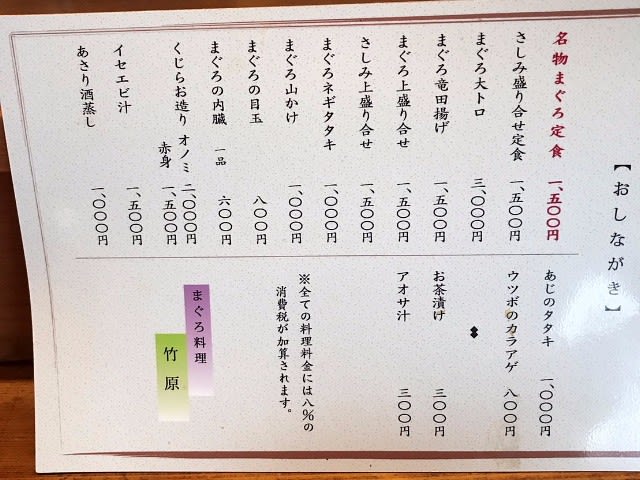 【おしながき】
名物まぐろ定食 一、五〇〇円
さしみ盛り合せ定食 一、五〇〇円
まぐろ大トロ 三、〇〇〇円
まぐろ竜田揚げ 一、五〇〇円
まぐろ上盛り合せ 一、五〇〇円
さしみ上盛り合せ 一、五〇〇円
まぐろネギタタキ 一、〇〇〇円
まぐろ山かけ 一、〇〇〇円
まぐろの目玉 八〇〇円
まぐろの内臓 一品 六〇〇円
くじらお造り オノミ 二、〇〇〇円
赤身 一、五〇〇円
イセエビ汁 一、五〇〇円
あさり酒蒸し 一、〇〇〇円
あじのタタキ 一、〇〇〇円
ウツボのカラアゲ 八〇〇円
お茶漬け 三〇〇円
アオサ汁 三〇〇円
※全ての料理料金には八%の
消費税が加算されます。
まぐろ料理
竹原